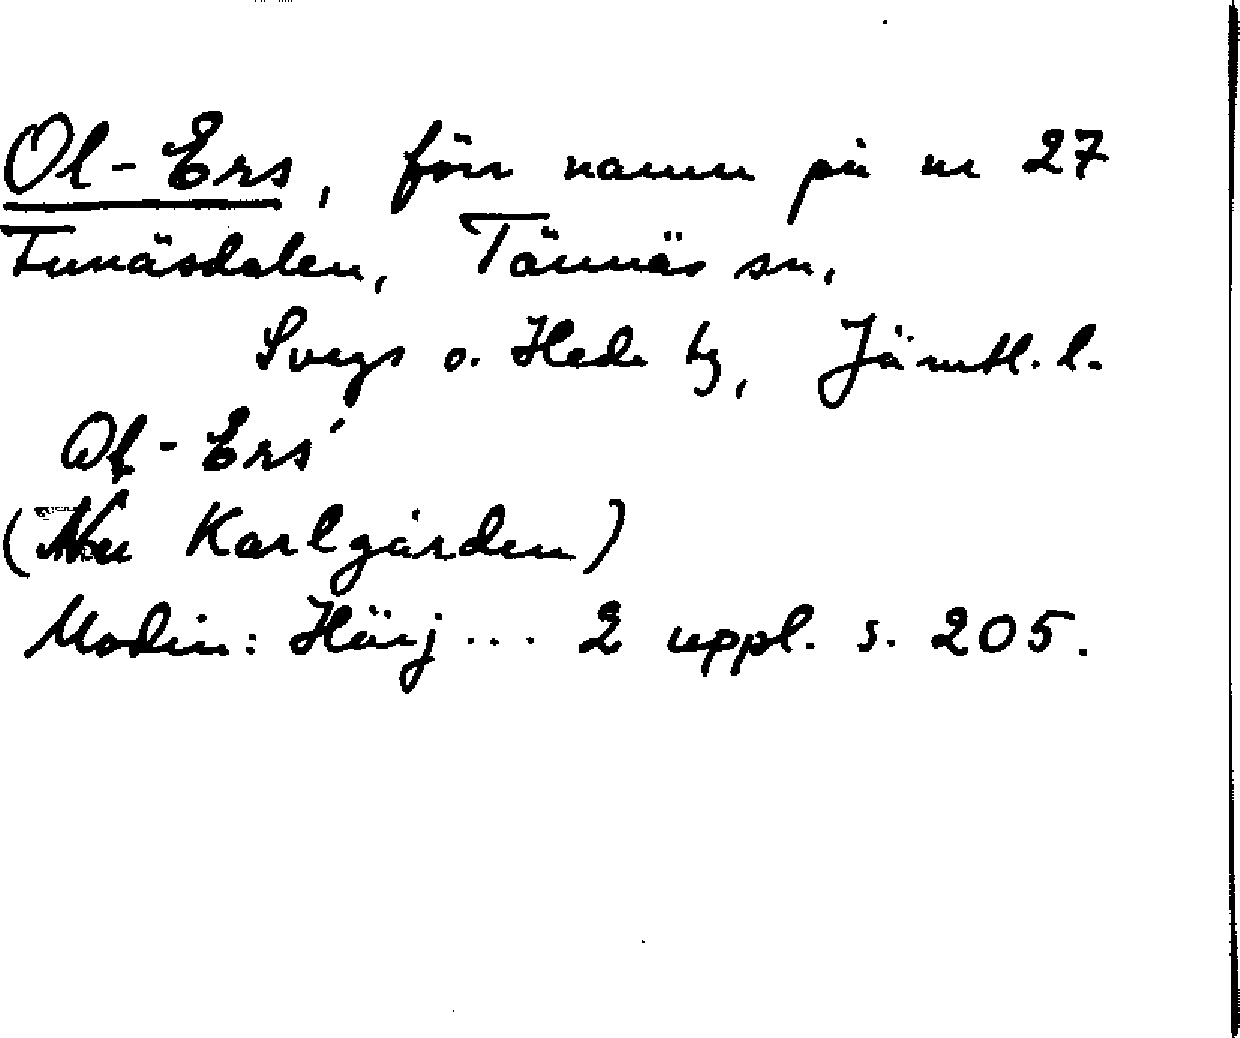 Ol-Ers, förr namn på nr 27
Funäsdalen, Tännäs sn,
Svegs o. Hede tg, Jämtl. l.
Ol-Ers'
(Nu Karlgården)
Modin: Härj... 2 uppl. s. 205.